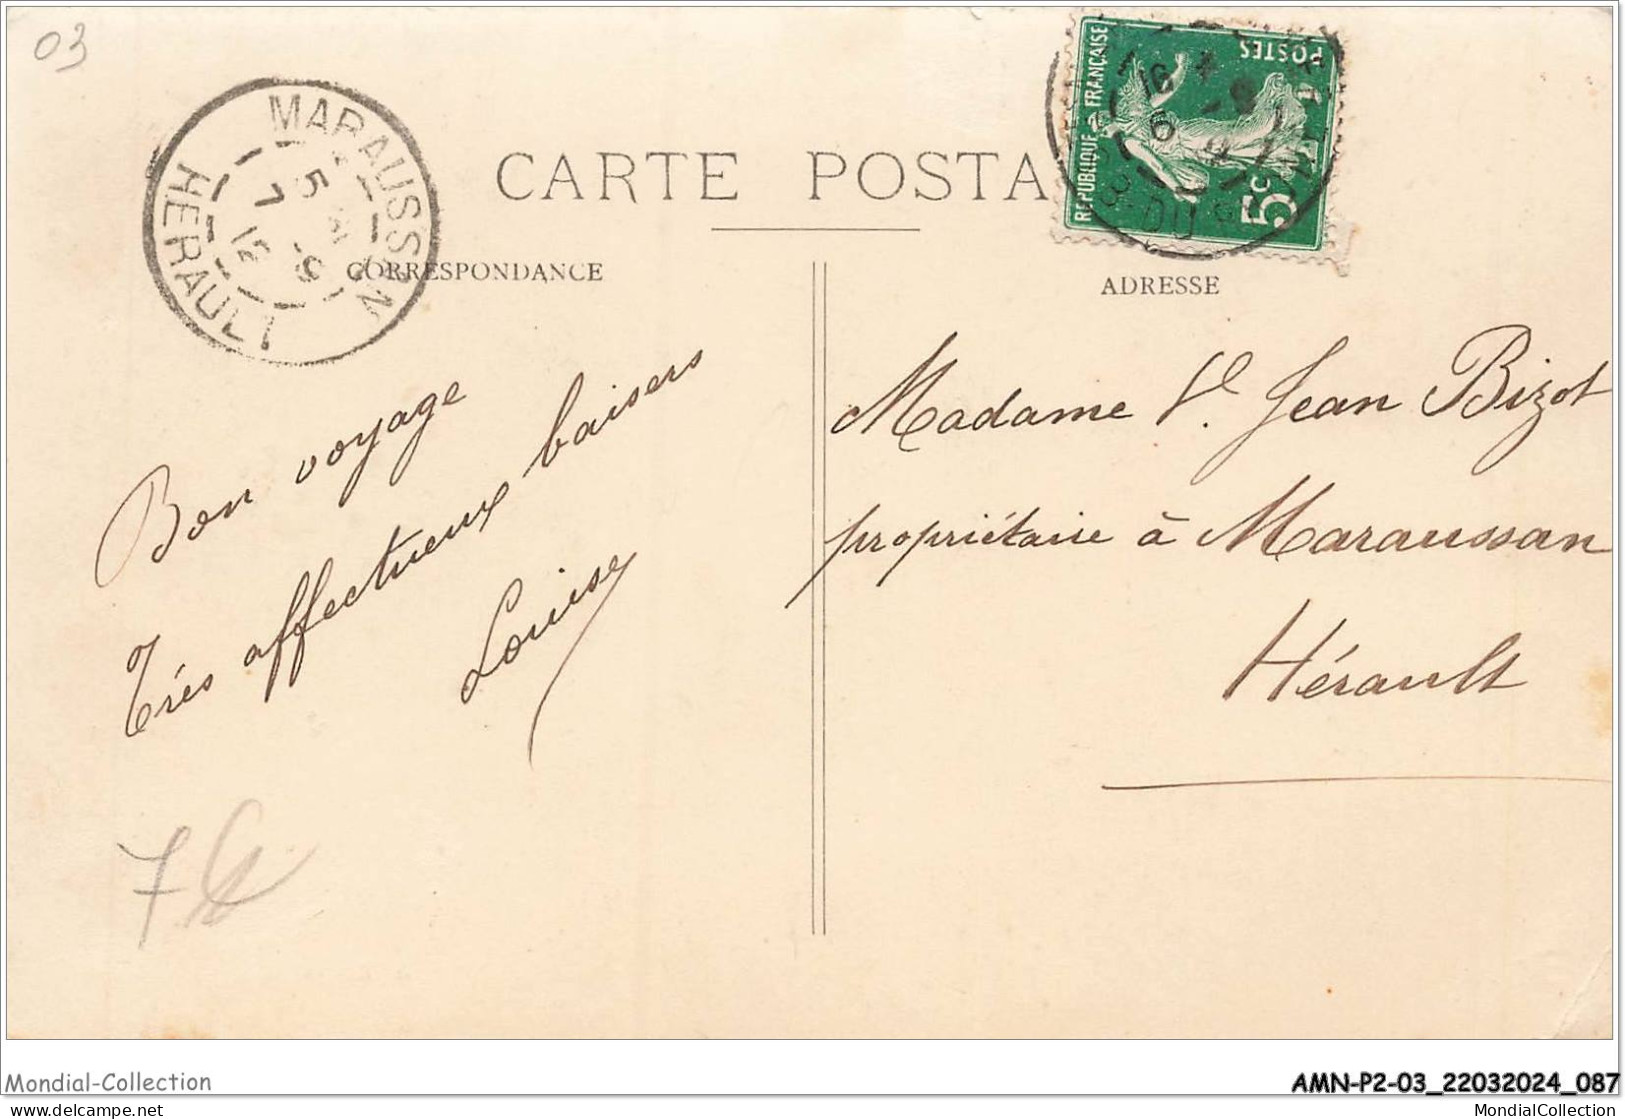 03
MARAUSSAN
HERAULT
CARTE POSTA
REPUBLIQUE FRANÇAISE
POSTES
5c
CORRESPONDANCE
ADRESSE
Bon voyage
Très affectueux baisers
Louise
Madame Ve. Jean Bizot
propriétaire à Maraussan
Hérault
Mondial-Collection
AMN-P2-03_22032024_087
www.delcampe.net
MondialCollection